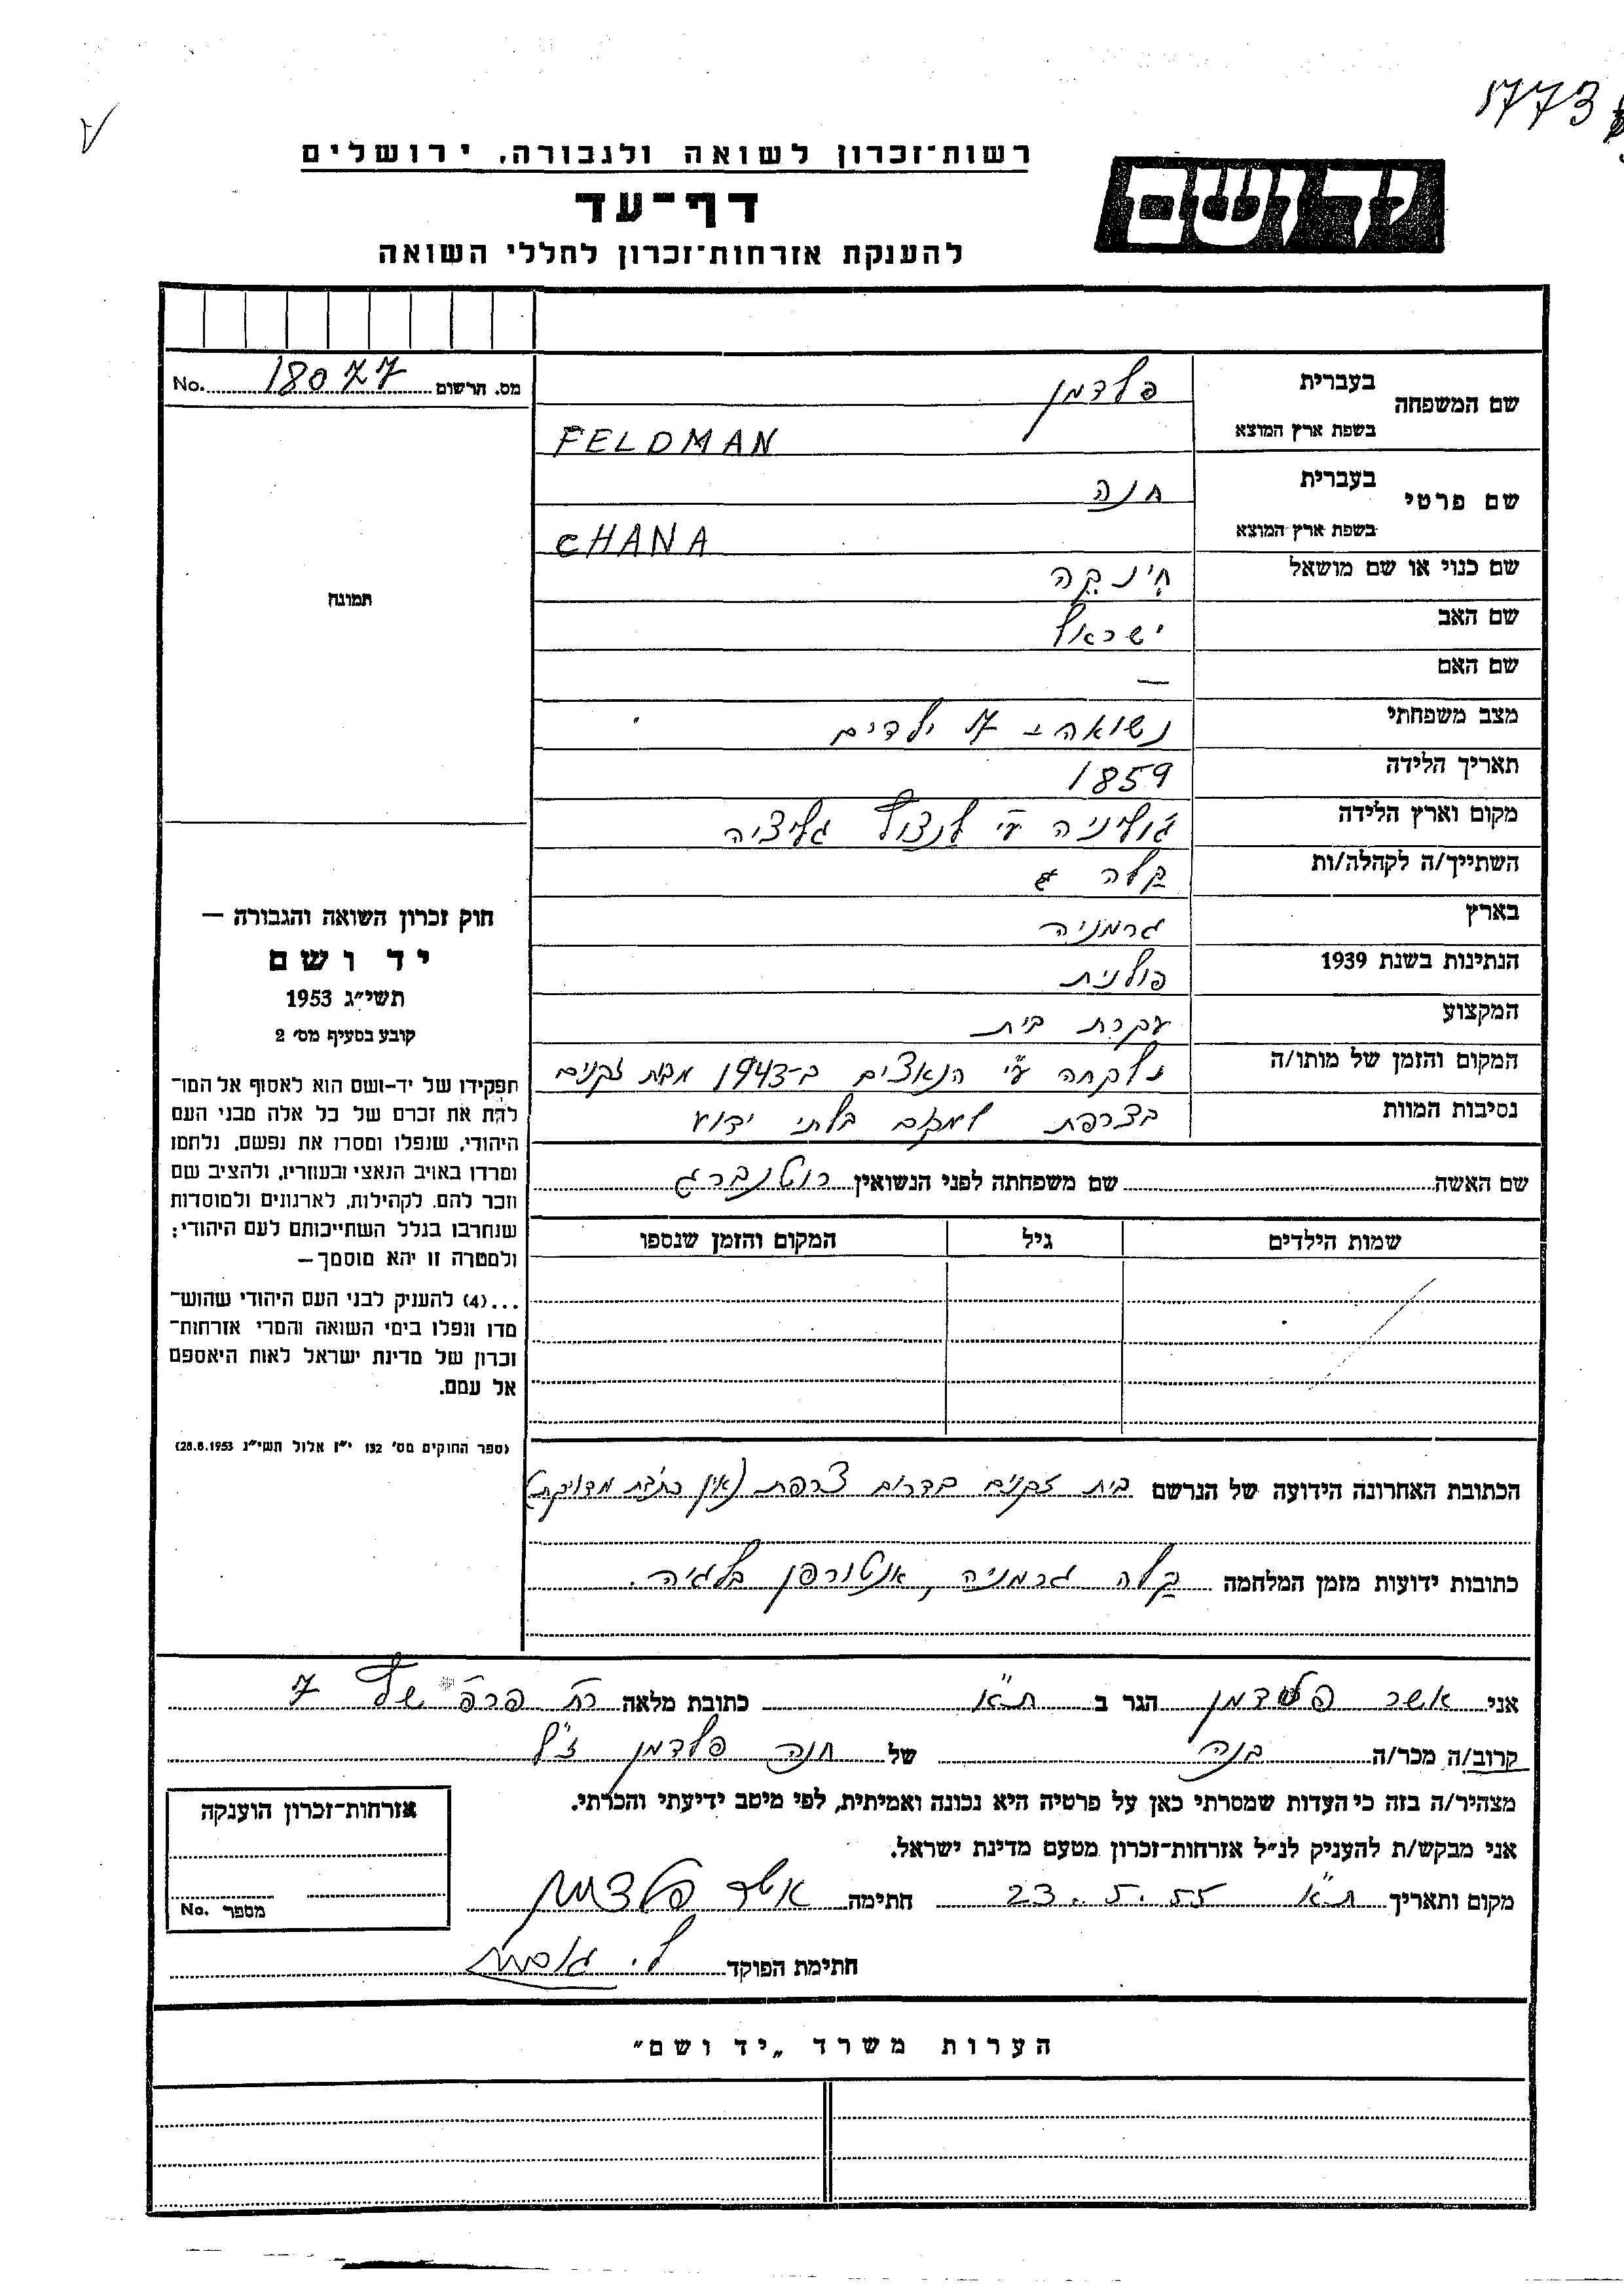 1773
רשות־זכרון לשואה ולגבורה, ירושלים
יד ושם
דף־עד
להענקת אזרחות־זכרון לחללי השואה
מס. הרשום 18077 No.
שם המשפחה
בעברית פלדמן
בשפת ארץ המוצא FELDMAN
שם פרטי
בעברית חנה
בשפת ארץ המוצא CHANA
שם כנוי או שם מושאל חינקה
שם האב ישראל
שם האם —
מצב משפחתי נשואה - 7 ילדים
תאריך הלידה 1859
מקום וארץ הלידה ע"י לנצוט גליציה
השתייך/ה לקהלה/ות
בארץ גרמניה
הנתינות בשנת 1939 פולנית
המקצוע עקרת בית
המקום והזמן של מותו/ה נלקחה ע"י הנאצים ב-1943 מבית זקנים
נסיבות המוות בצרפת למקום בלתי ידוע
שם האשה שם משפחתה לפני הנשואין רוטנברג
שמות הילדים גיל המקום והזמן שנספו
הכתובת האחרונה הידועה של הנרשם בית זקנים בדרום צרפת (אין כתבת מדויקת)
כתובות ידועות מזמן המלחמה גרמניה, אנטורפן בלגיה.
תמונה
חוק זכרון השואה והגבורה —
יד ושם
תשי"ג 1953
קובע בסעיף מס' 2
תפקידו של יד-ושם הוא לאסוף אל המו־
לדת את זכרם של כל אלה מבני העם
היהודי, שנפלו ומסרו את נפשם, נלחמו
ומרדו באויב הנאצי ובעוזריו, ולהציב שם
וזכר להם, לקהילות, לארגונים ולמוסדות
שנחרבו בגלל השתייכותם לעם היהודי;
ולמטרה זו יהא מוסמך—
...(4) להעניק לבני העם היהודי שהוש־
מדו ונפלו בימי השואה והמרי אזרחות־
זכרון של מדינת ישראל לאות היאספם
אל עמם.
(ספר החוקים מס' 132 י"ז אלול תשי"ג 28.8.1953)
אני אשר פלדמן הגר ב ת"א כתובת מלאה רח' 7
קרוב/ה מכר/ה בנה של חנה פלדמן ז"ל
מצהיר/ה בזה כי העדות שמסרתי כאן על פרטיה היא נכונה ואמיתית, לפי מיטב ידיעתי והכרתי.
אני מבקש/ת להעניק לנ"ל אזרחות־זכרון מטעם מדינת ישראל.
מקום ותאריך ת"א 23.5.55 חתימה אשר פלדמן
חתימת הפוקד
אזרחות־זכרון הוענקה
מספר No.
הערות משרד „יד ושם"